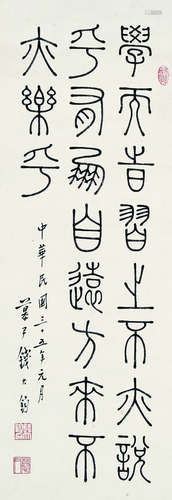 學而旹習之不亦說
乎有朋自遠方來不
亦樂乎
中華民國三十五年元月